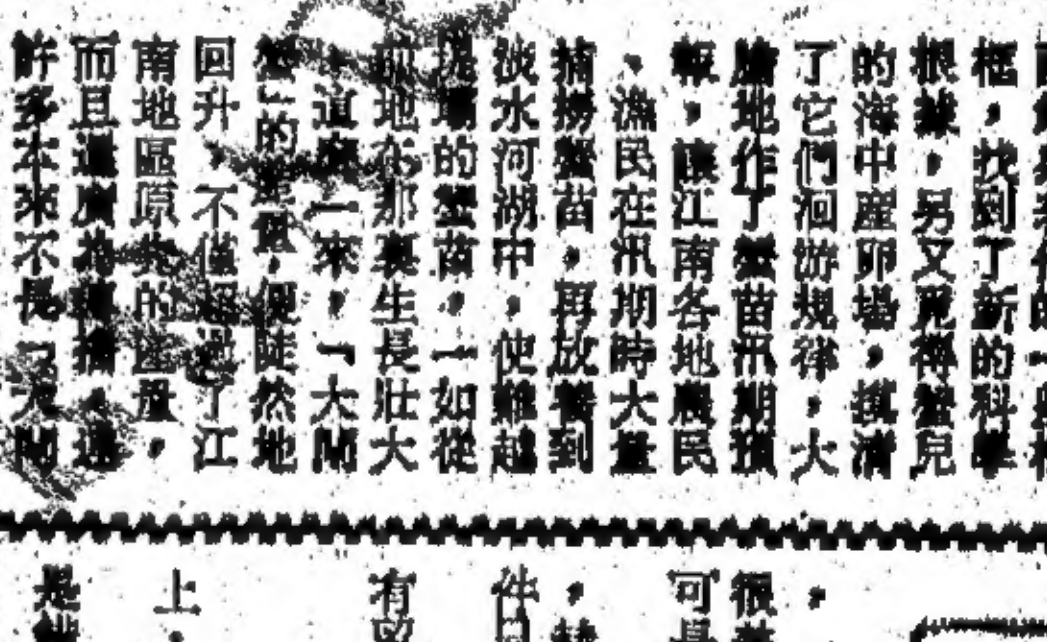 框，找到了新的科學
根據，另又覓得蟹兒
的海中產卵場，摸清
了它們洄游規律，大
膽地作了蟹苗汛期預
報，讓江南各地農民
、漁民在汛期時大量
捕撈蟹苗，再放養到
淡水河湖中，使難越
堤壩的蟹苗，一如從
前地在那裏生長壯大
。這麼一來，「大閘
蟹」的產量，便陡然地
回升，不僅超過了江
南地區原來的產量，
而且還廣為
許多本來不長「大閘
很
可是
，
件
有
上，
是